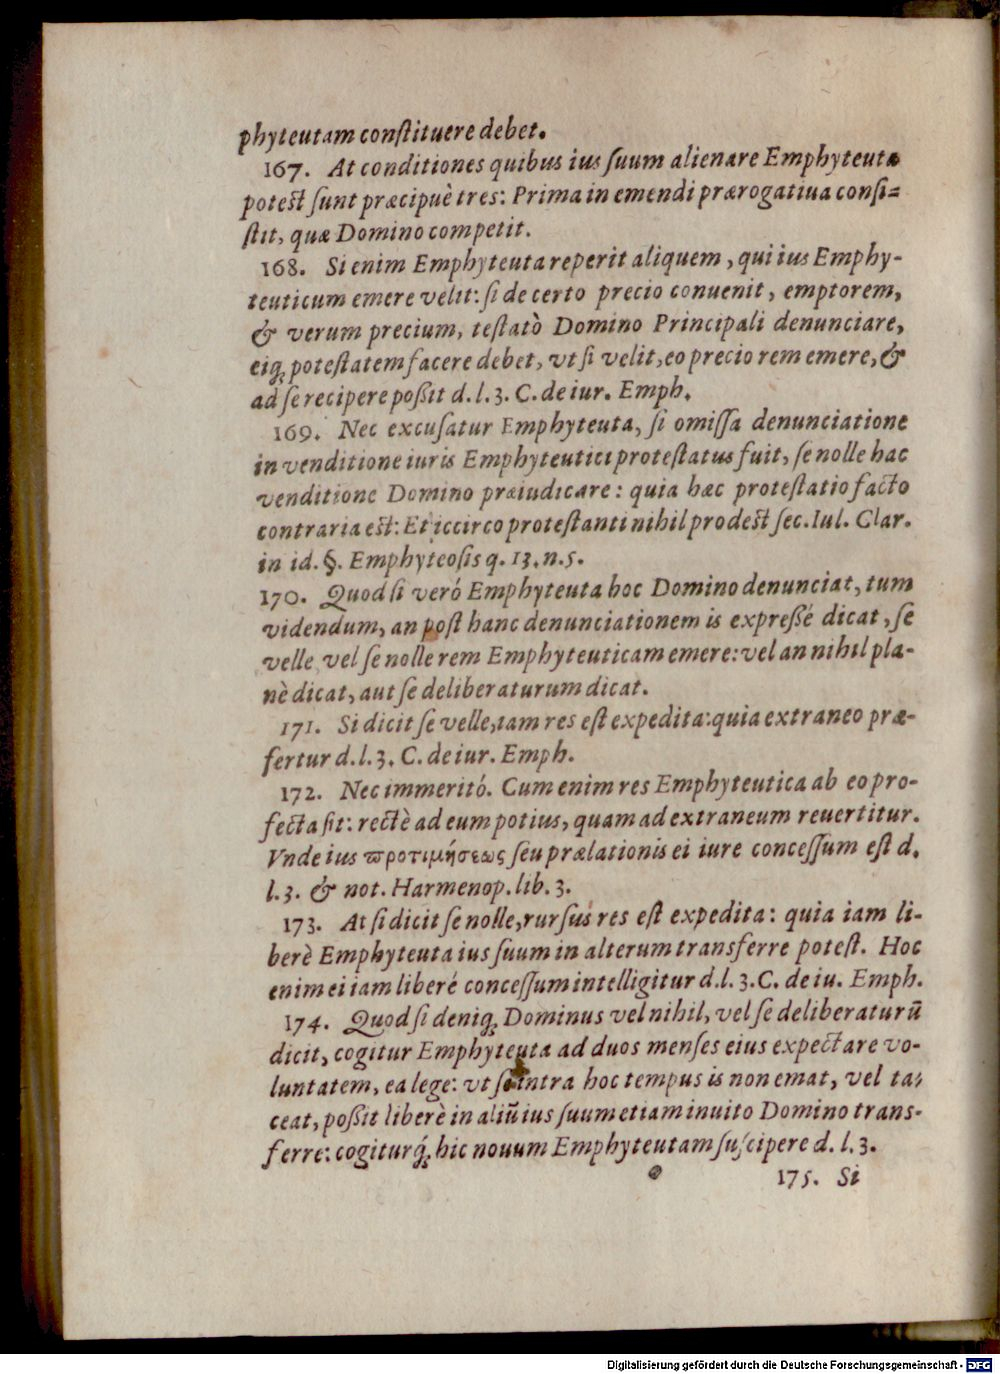 phyteutam conſtituere debet.
167. At conditiones quibus ius ſuum alienare Emphyteuta
potest ſunt præcipuè tres: Prima in emendi prærogatiua conſi=
ſtit, quæ Domino competit.
168. Si enim Emphyteuta reperit aliquem, qui ius Emphy-
teuticum emere velit: ſi de certo precio conuenit, emptorem,
& verum precium, teſtatò Domino Principali denunciare,
eiq; poteſtatem facere debet, vt ſi velit, eo precio rem emere, &
ad ſe recipere poßit d. l. 3. C. de iur. Emph.
169. Nec excuſatur Emphyteuta, ſi omiſſa denunciatione
in venditione iuris Emphyteutici proteſtatus fuit, ſe nolle hac
venditione Domino præiudicare: quia hæc proteſtatio facto
contraria est: Et iccirco proteſtanti nihil prodest ſec. Iul. Clar.
in id. §. Emphyteoſis q. 13. n. 5.
170. Quod ſi veró Emphyteuta hoc Domino denunciat, tum
videndum, an poſt hanc denunciationem is expreßé dicat, ſe
velle vel ſe nolle rem Emphyteuticam emere: vel an nihil pla-
nè dicat, aut ſe deliberaturum dicat.
171. Si dicit ſe velle, iam res eſt expedita: quia extraneo præ-
fertur d. l. 3. C. de iur. Emph.
172. Nec immeritó. Cum enim res Emphyteutica ab eo pro-
fecta ſit: rectè ad eum potius, quam ad extraneum reuertitur.
Vnde ius ϖροτιμήσεως ſeu prælationis ei iure conceſſum eſt d.
l. 3. & not. Harmenop. lib. 3.
173. At ſi dicit ſe nolle, rurſus res eſt expedita: quia iam li-
berè Emphyteuta ius ſuum in alterum transferre poteſt. Hoc
enim ei iam liberé conceſſum intelligitur d. l. 3. C. de iu. Emph.
174. Quod ſi deniq; Dominus vel nihil, vel ſe deliberaturū
dicit, cogitur Emphyteuta ad duos menſes eius expectare vo-
luntatem, ea lege: vt ſi intra hoc tempus is non emat, vel ta-
ceat, poßit liberè in aliū ius ſuum etiam inuito Domino trans-
ferre: cogiturq́; hic nouum Emphyteutam ſuſcipere d. l. 3.
175. Si
Digitalisierung gefördert durch die Deutsche Forschungsgemeinschaft - DFG